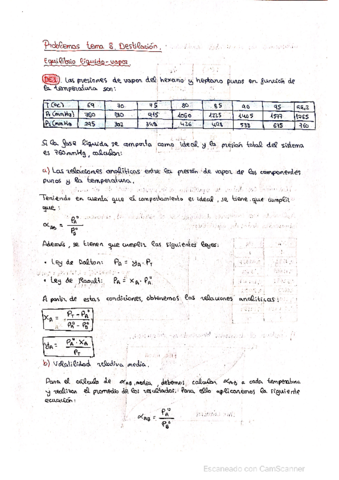 Problemas tema 8. Destilación.
Equilibrio líquido-vapor
Las presiones de vapor del hexano y heptano puros en función de
la temperatura son:
T (ºC) 69 70 75 80 85 90 95
Si la fase líquida se comporta como ideal y la presión total del sistema
es 760mmHg, calcular:
a) Las relaciones analíticas entre la presión de vapor de los componentes
puros y la temperatura.
Teniendo en cuenta que el comportamiento es ideal, se tiene que cumplir
que:
αAB = PA° / PB°
Además, se tienen que cumplir las siguientes leyes:
• Ley de Dalton: 
• Ley de Raoult: PA = XA · PA°
A partir de estas condiciones, obtenemos las relaciones analíticas:
b) Volatilidad relativa media.
Para el cálculo de αAB media, debemos calcular αAB a cada temperatura
y realizar el promedio de los resultados. Para ello aplicaremos la siguiente
ecuación:
αAB = PA° / PB°
Escaneado con CamScanner